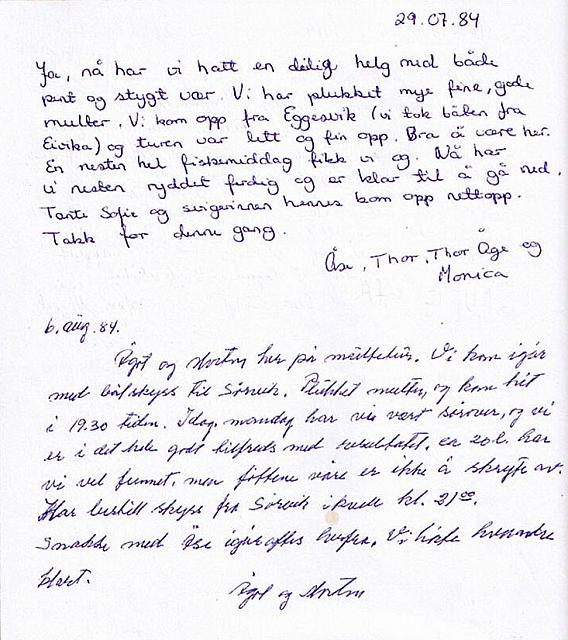 29.07.84
Ja, nå har vi hatt en deilig helg med både
pent og stygt vær. Vi har plukket mye fine, gode
multer. Vi kom opp fra Eggesvik (vi tok båten fra
Eivika) og turen var lett og fin opp. Bra å være her.
En nesten hel fiskemiddag fikk vi og. Nå har
vi nesten ryddet ferdig og er klar til å gå ned.
Tante Sofie og svigerinnen hennes kom opp nettopp.
Takk for denne gang.
Åse, Thor, Thor Åge og
Monica
6. aug. 84.
og her på multetur. Vi kom igår
med båtskyss til Sørvik. Plukket multer, og kom hit
i 19.30 tiden. Idag, mandag har vi vært sørover, og vi
er i det hele godt tilfreds med resultatet, ca 20 l. har
vi vel funnet, men føttene våre er ikke å skryte av.
Har bestilt skyss fra Sørvik ikveld kl. 21⁰⁰.
Snakke med Åse igåraftes herfra. Vi hørte hverandre
klart.
og